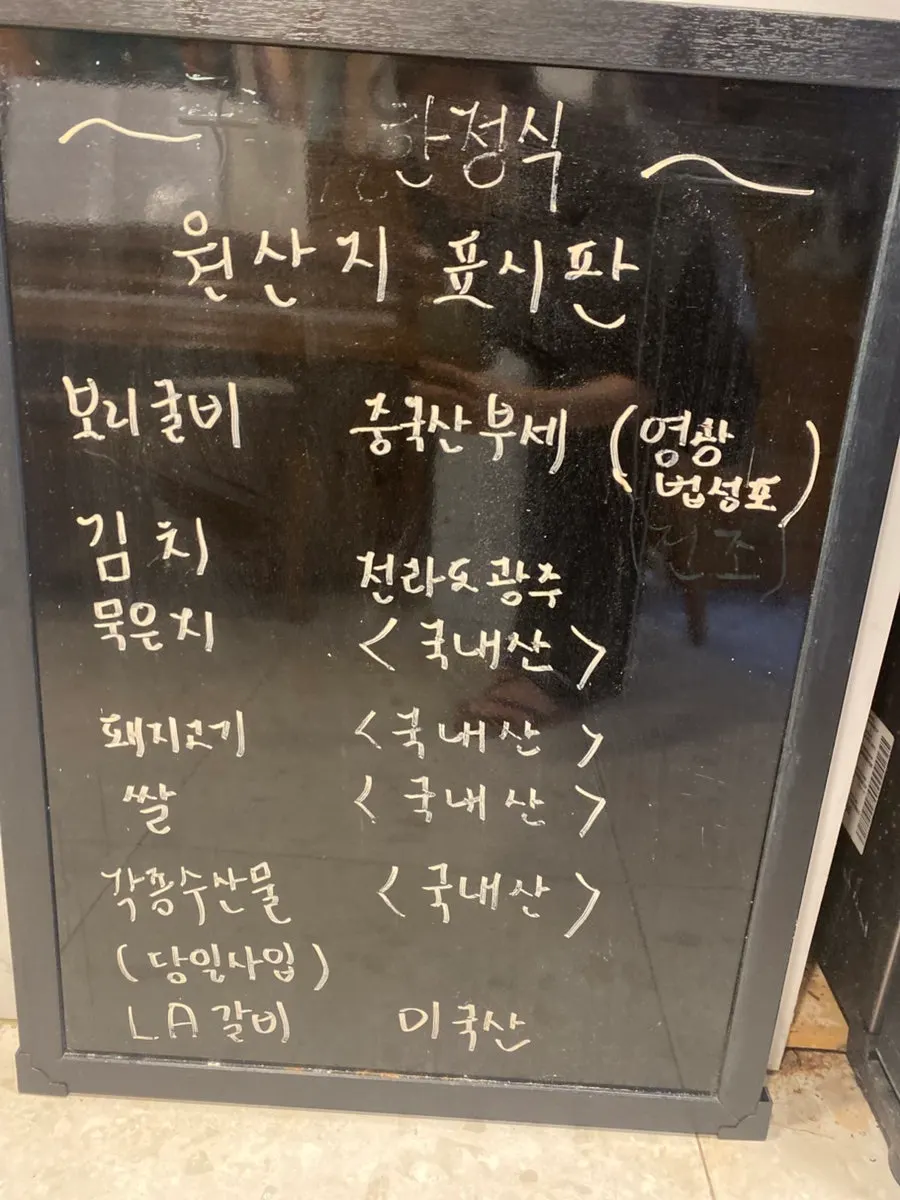 한정식
원산지 표시판
보리굴비 중국산부세 (영광
법성포)
(건조)
김치 전라도광주
묵은지 <국내산>
돼지고기 <국내산>
쌀 <국내산>
각종수산물 <국내산>
(당일사입)
LA갈비 미국산